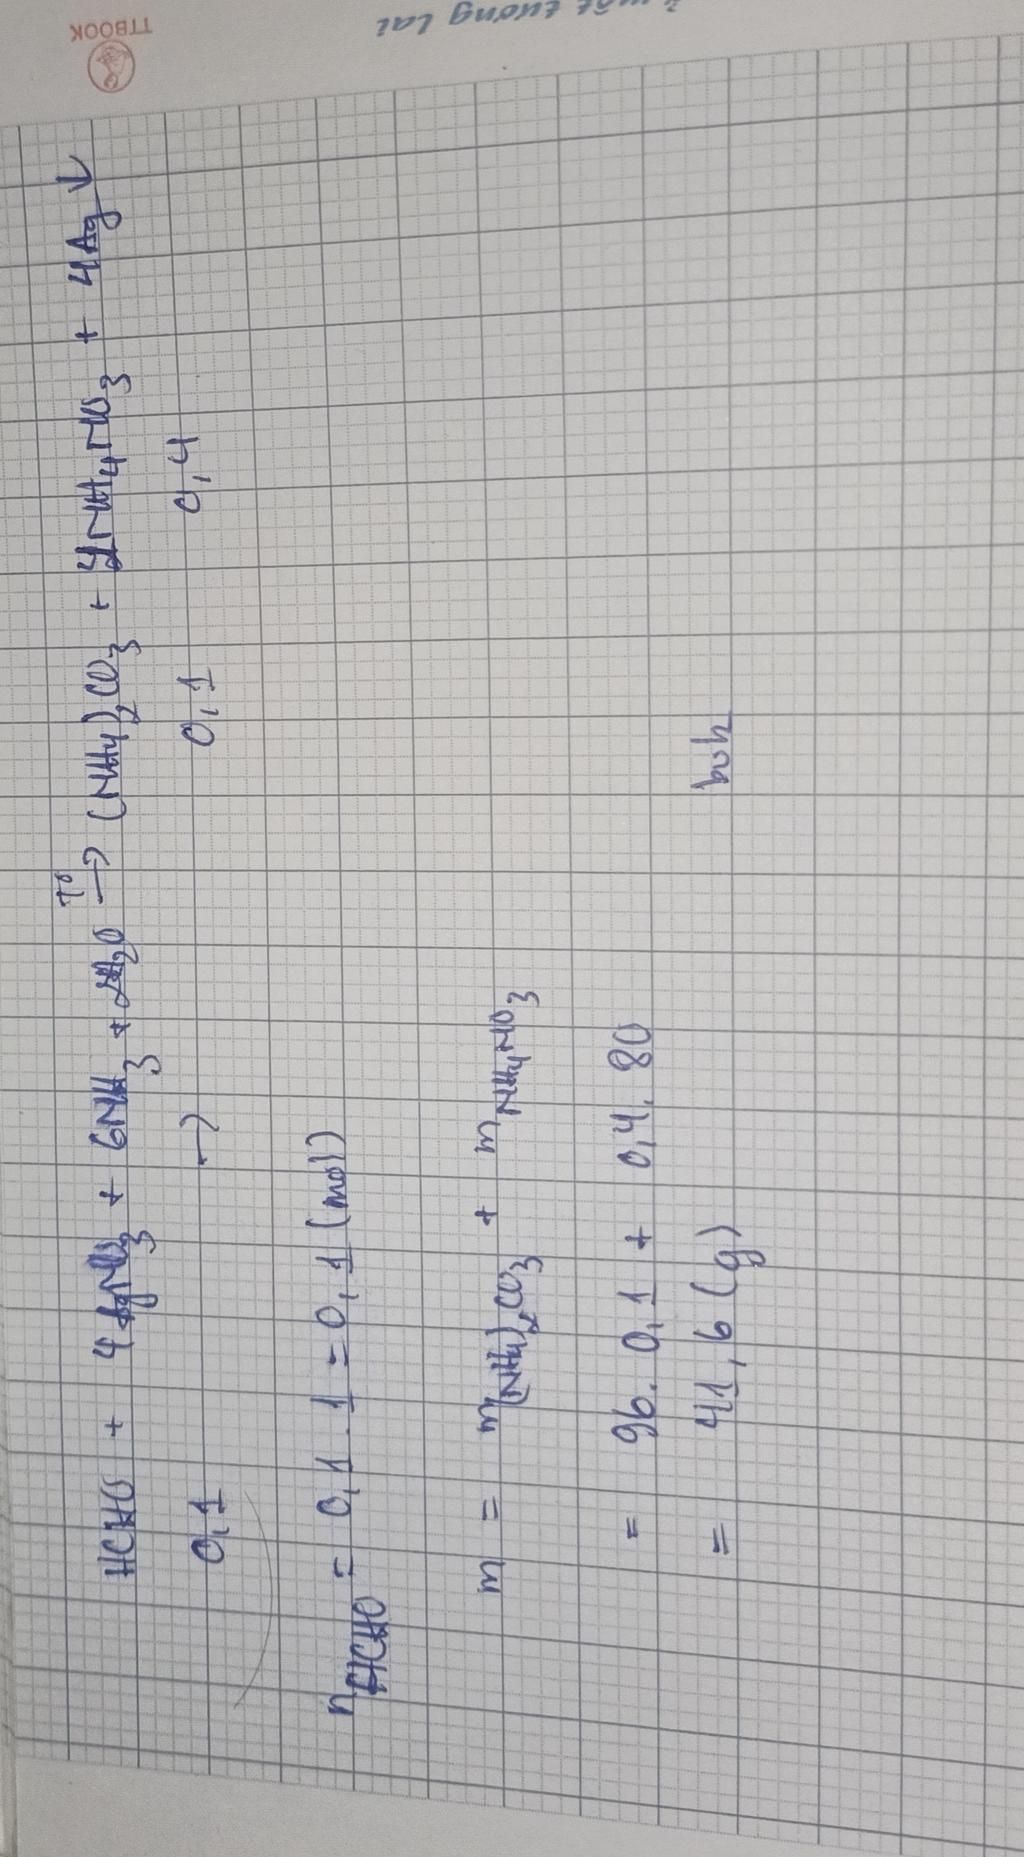 TTBOOK
tương lai
HCHO + 4AgNO3 + 6NH3 + 2H2O t° → (NH4)2CO3 + 4NH4NO3 + 4Ag ↓
0,1 → 0,1 0,4
nHCHO = 0,1 . 1 = 0,1 (mol)
m = m(NH4)2CO3 + mNH4NO3
= 96. 0,1 + 0,4. 80
= 41,6 (g)